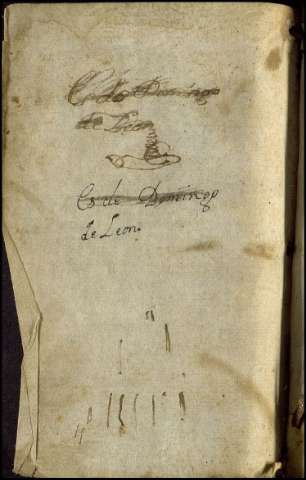 Es de Domingo
de Leon
Es de Domingo
de Leon